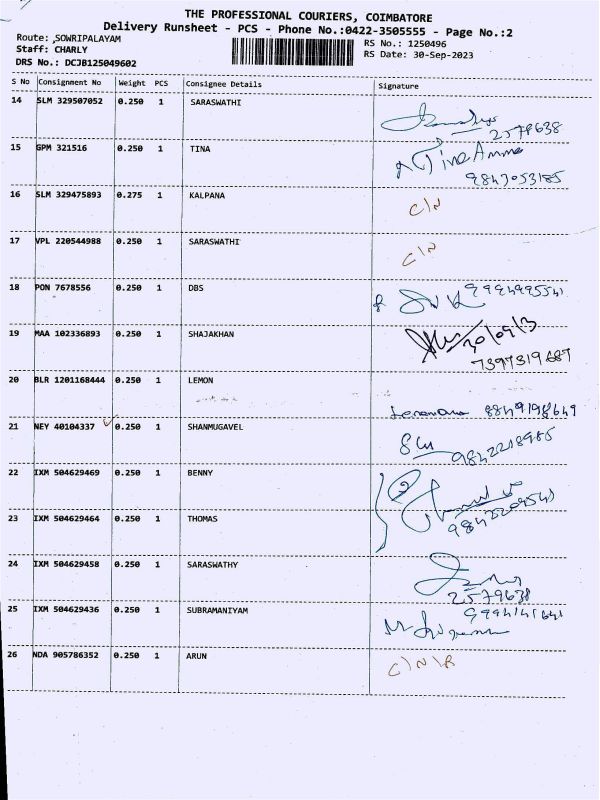 THE PROFESSIONAL COURIERS, COIMBATORE
Delivery Runsheet - PCS - Phone No.:0422-3505555 - Page No.:2
Route: ,SOWRIPALAYAM
RS No.: 1250496
Staff: CHARLY
RS Date: 30-Sep-2023
DRS No.: DCJB125049602
S No Consignment No Weight PCS Consignee Details Signature
14 SLM 329507052 0.250 1 SARASWATHI
2579638
15 GPM 321516 0.250 1 TINA Tine Amma
9847053185
16 SLM 329475893 0.275 1 KALPANA C/N
17 VPL 220544988 0.250 1 SARASWATHI C/N
18 PON 7678556 0.250 1 DBS
19 MAA 102336893 0.250 1 SHAJAKHAN 30/09/3
7397319687
20 BLR 1201168444 0.250 1 LEMON
8849198649
21 NEY 40104337 0.250 1 SHANMUGAVEL
9842218985
22 IXM 504629469 0.250 1 BENNY
23 IXM 504629464 0.250 1 THOMAS
24 IXM 504629458 0.250 1 SARASWATHY
2579638
25 IXM 504629436 0.250 1 SUBRAMANIYAM
26 NDA 905786352 0.250 1 ARUN C/N/R